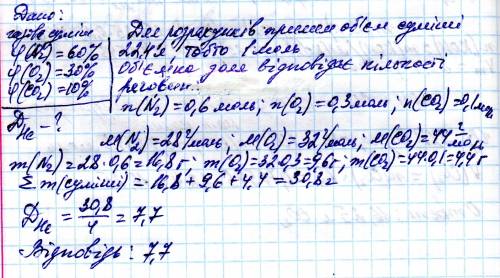 Дано:
газова суміш
φ(N₂) = 60%
φ(O₂) = 30%
φ(CO₂) = 10%
D_He - ?
Для розрахунків приймем об'єм суміші
22,4 л, тобто 1 моль
Об'ємна доля відповідає кількості
речовин:
n(N₂) = 0,6 моль; n(O₂) = 0,3 моль; n(CO₂) = 0,1 моль
M(N₂) = 28 г/моль; M(O₂) = 32 г/моль; M(CO₂) = 44 г/моль
m(N₂) = 28·0,6 = 16,8 г; m(O₂) = 32·0,3 = 9,6 г; m(CO₂) = 44·0,1 = 4,4 г
Σ m(суміші) = 16,8 + 9,6 + 4,4 = 30,8 г
D_He = 30,8/4 = 7,7
Відповідь: 7,7